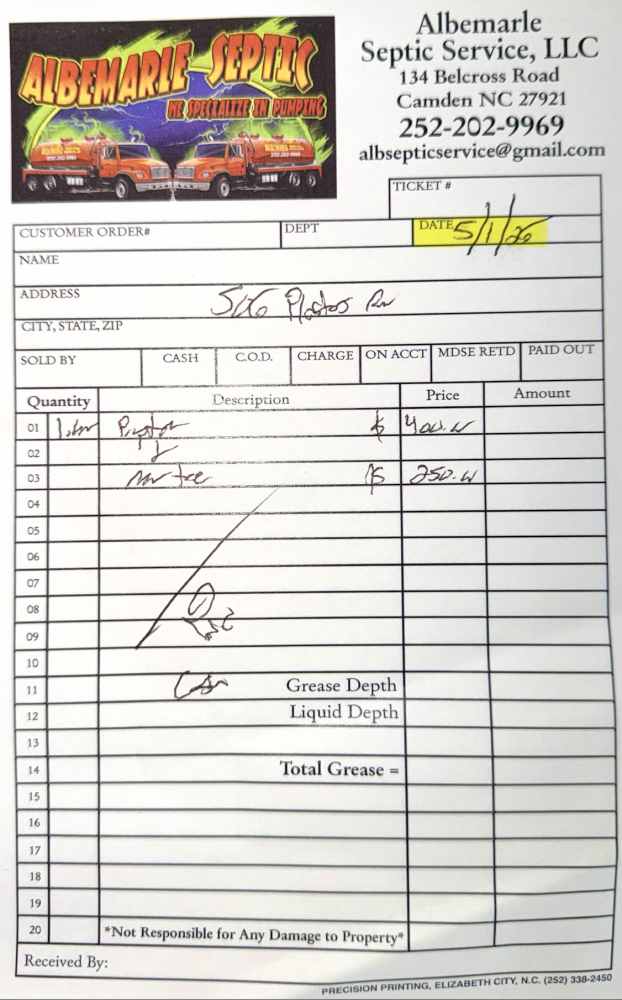 ALBEMARLE SEPTIC
WE SPECIALIZE IN PUMPING
Albemarle
Septic Service, LLC
134 Belcross Road
Camden NC 27921
252-202-9969
albsepticservice@gmail.com
TICKET #
CUSTOMER ORDER# DEPT DATE 5/1/26
NAME
ADDRESS
CITY, STATE, ZIP
SOLD BY CASH C.O.D. CHARGE ON ACCT MDSE RETD PAID OUT
Quantity Description Price Amount
01 $ 400.
02
03 $ 250.
04
05
06
07
08
09
10
11 Grease Depth
12 Liquid Depth
13
14 Total Grease =
15
16
17
18
19
20 *Not Responsible for Any Damage to Property*
Received By:
PRECISION PRINTING, ELIZABETH CITY, N.C. (252) 338-2450